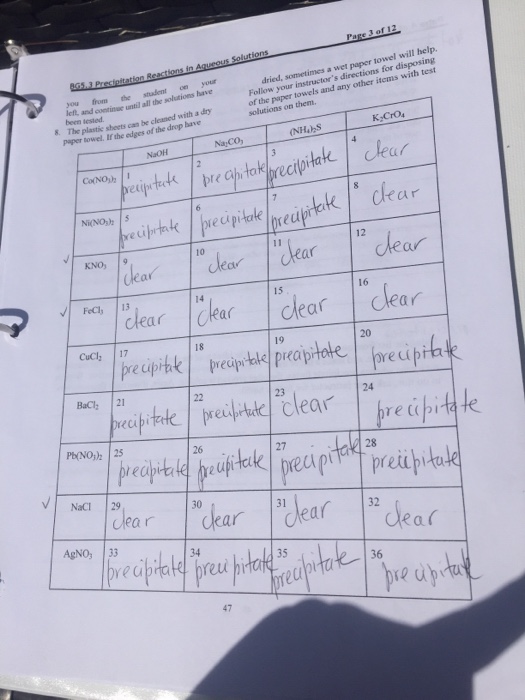 Page 3 of 12
BGS. 3 Precipitation Reactions in Aqueous Solutions
you from the student on your
left, and continue until all the solutions have
been tested.
8. The plastic sheets can be cleaned with a dry
paper towel. If the edges of the drop have
dried, sometimes a wet paper towel will help.
Follow your instructor's directions for disposing
of the paper towels and any other items with test
solutions on them.
NaOH Na₂CO₃ (NH₄)₂S K₂CrO₄
Co(NO₃)₂ 1 precipitate 2 precipitate 3 precipitate 4 clear
Ni(NO₃)₂ 5 precipitate 6 precipitate 7 precipitate 8 clear
✓ KNO₃ 9 clear 10 clear 11 clear 12 clear
✓ FeCl₃ 13 clear 14 clear 15 clear 16 clear
CuCl₂ 17 precipitate 18 precipitate 19 precipitate 20 precipitate
BaCl₂ 21 precipitate 22 precipitate 23 clear 24 precipitate
Pb(NO₃)₂ 25 precipitate 26 precipitate 27 precipitate 28 precipitate
✓ NaCl 29 clear 30 clear 31 clear 32 clear
AgNO₃ 33 precipitate 34 precipitate 35 precipitate 36 precipitate
47